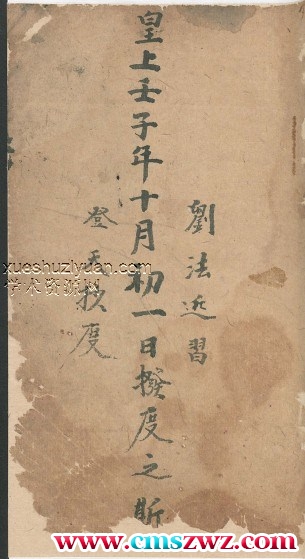 劉法近習
皇上壬子年十月初一日撥度之斯
登天撥度
xueshuziyuan.com
学术资源网
www.cmszwz.com